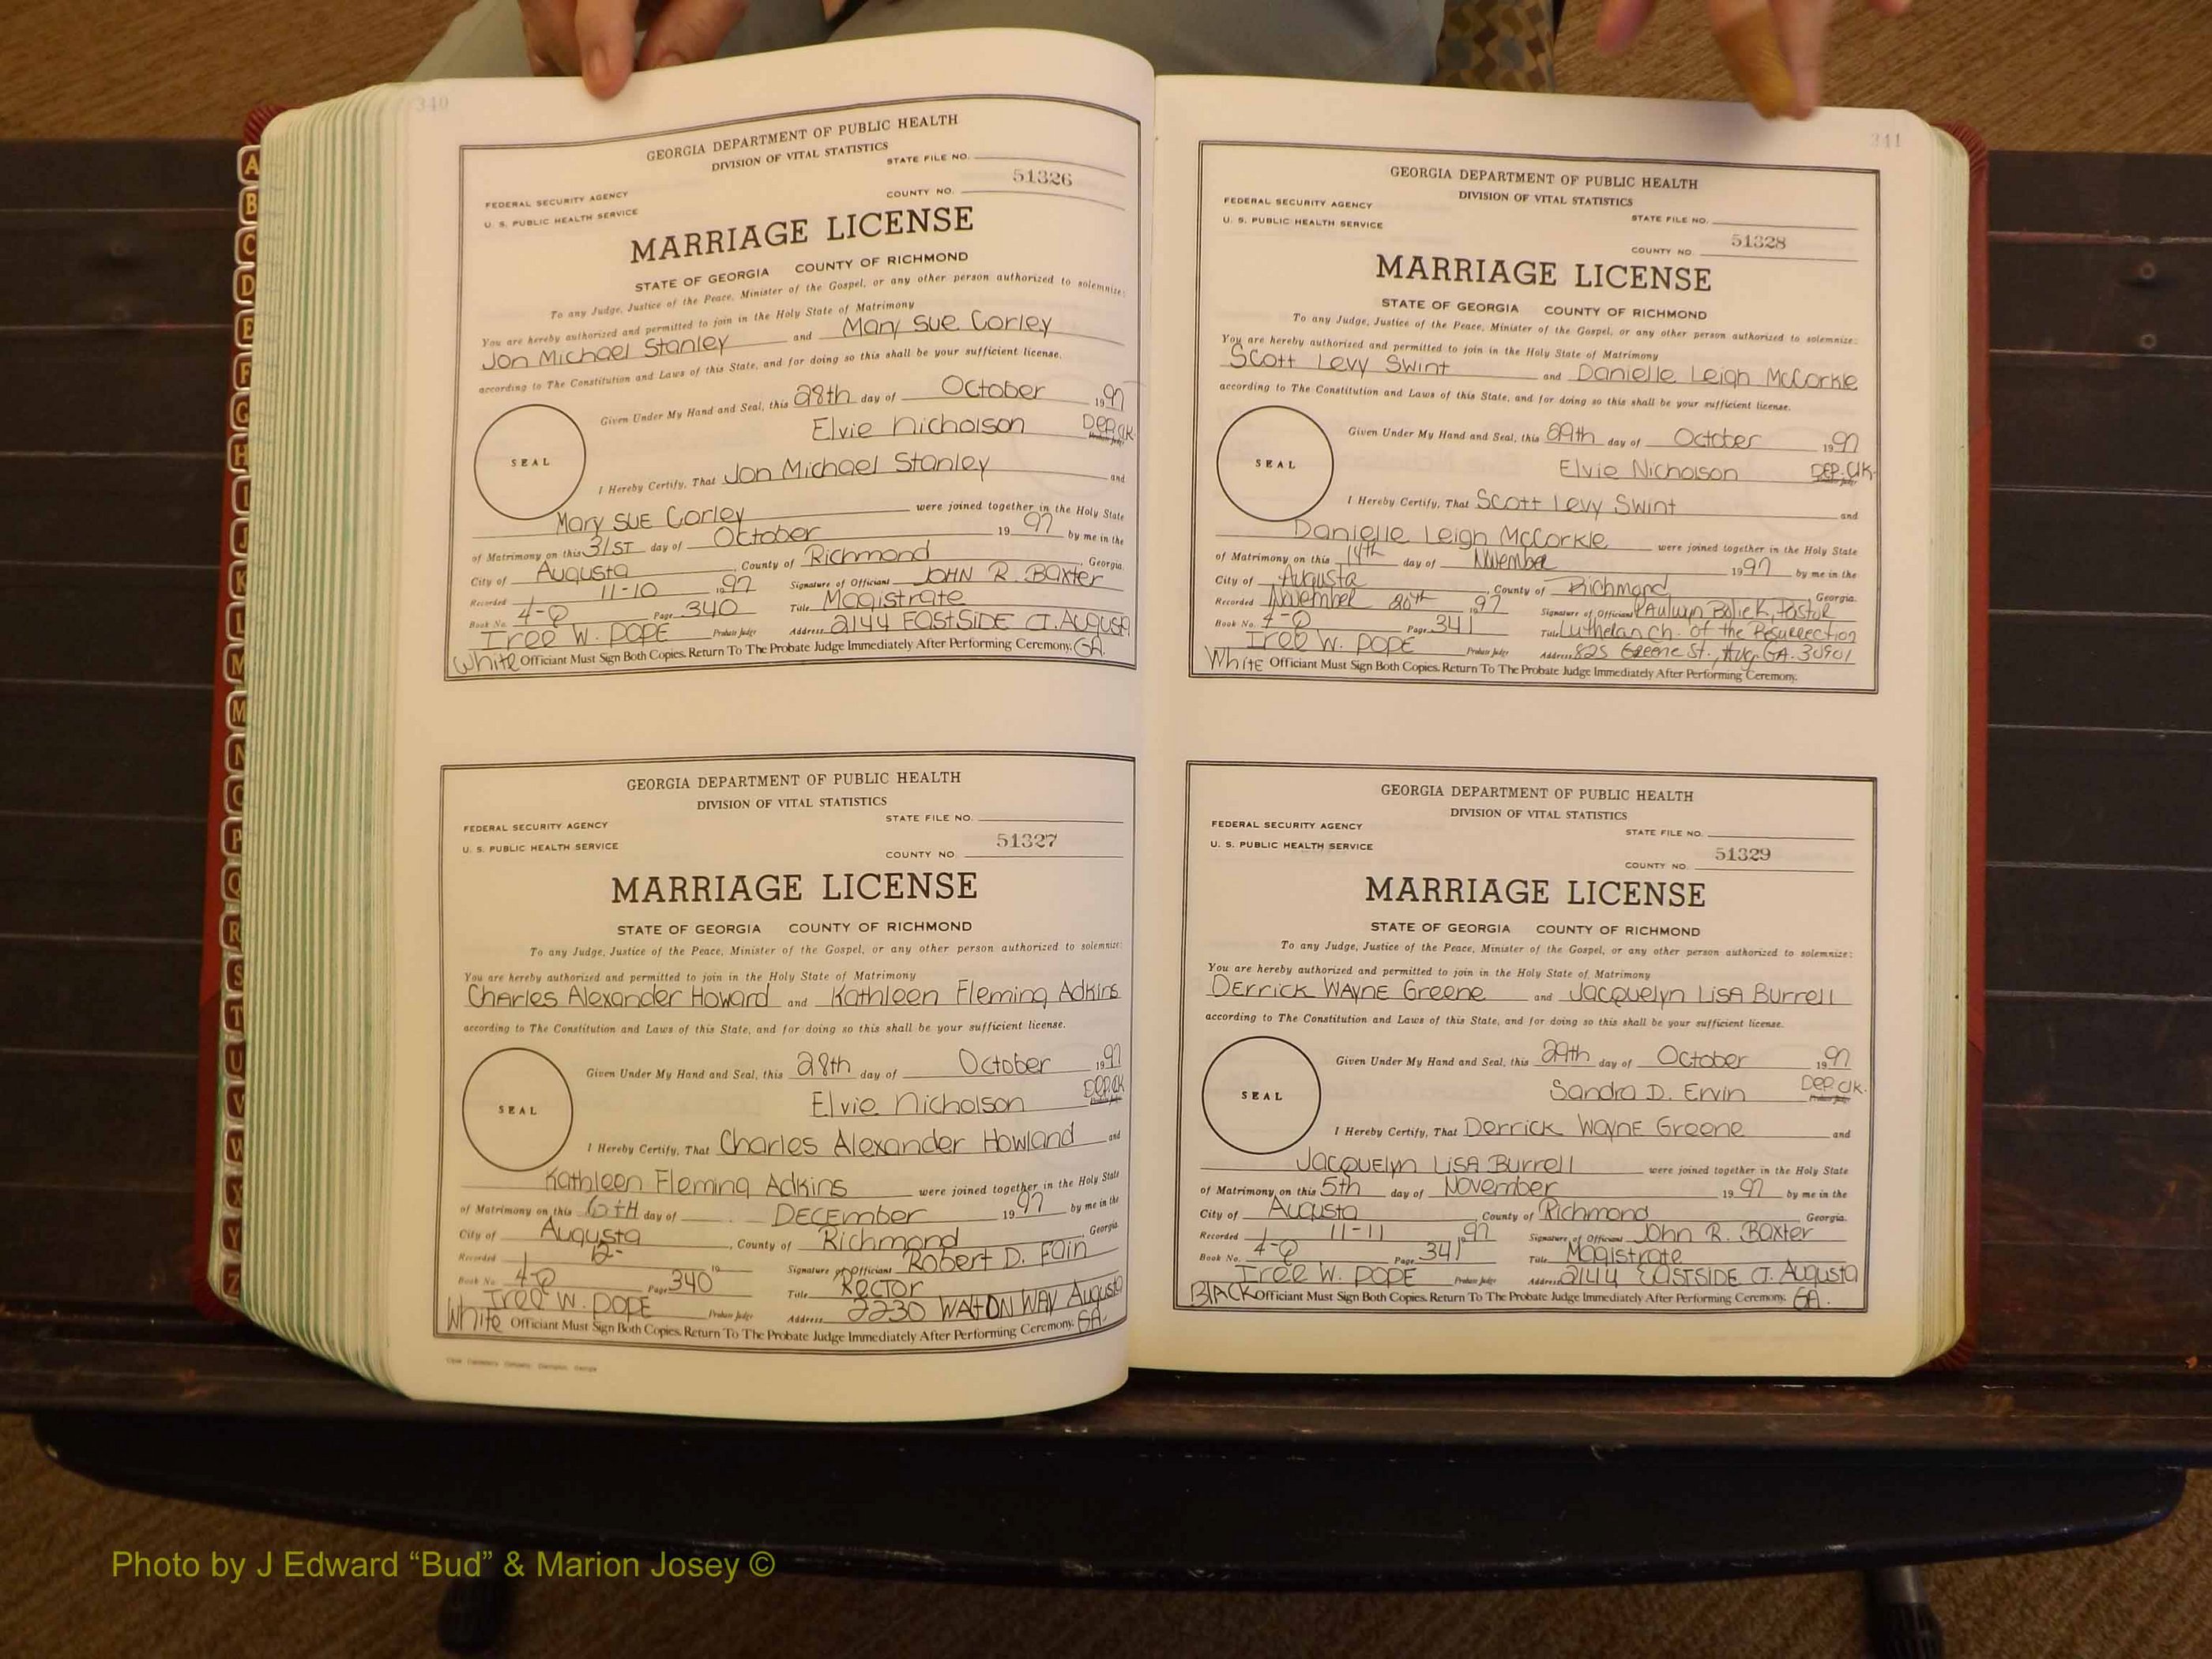 340
GEORGIA DEPARTMENT OF PUBLIC HEALTH
DIVISION OF VITAL STATISTICS
STATE FILE NO.
FEDERAL SECURITY AGENCY
51326
U. S. PUBLIC HEALTH SERVICE
COUNTY NO.
MARRIAGE LICENSE
STATE OF GEORGIA COUNTY OF RICHMOND
To any Judge, Justice of the Peace, Minister of the Gospel, or any other person authorized to solemnize:
You are hereby authorized and permitted to join in the Holy State of Matrimony
Jon Michael Stanley and Mary Sue Corley
according to The Constitution and Laws of this State, and for doing so this shall be your sufficient license.
Given Under My Hand and Seal, this 28th day of October 1997
Elvie Nicholson DEP.CLK.
SEAL
I Hereby Certify, That Jon Michael Stanley and
Mary SUE Corley were joined together in the Holy State
of Matrimony on this 31ST day of October 1997 by me in the
City of Augusta, County of Richmond, Georgia.
Recorded 11-10 1997 Signature of Officiant JOHN R. Baxter
Book No. 4-Q Page 340 Title Magistrate
Iree W. POPE Probate Judge Address 2144 EASTSIDE CT. AUGUSTA
White Officiant Must Sign Both Copies. Return To The Probate Judge Immediately After Performing Ceremony. GA.
GEORGIA DEPARTMENT OF PUBLIC HEALTH
DIVISION OF VITAL STATISTICS
STATE FILE NO.
FEDERAL SECURITY AGENCY
51327
U. S. PUBLIC HEALTH SERVICE
COUNTY NO.
MARRIAGE LICENSE
STATE OF GEORGIA COUNTY OF RICHMOND
To any Judge, Justice of the Peace, Minister of the Gospel, or any other person authorized to solemnize:
You are hereby authorized and permitted to join in the Holy State of Matrimony
Charles Alexander Howard and Kathleen Fleming Adkins
according to The Constitution and Laws of this State, and for doing so this shall be your sufficient license.
Given Under My Hand and Seal, this 28th day of October 1997
Elvie Nicholson DEP.CLK
SEAL
I Hereby Certify, That Charles Alexander Howland and
Kathleen Fleming Adkins were joined together in the Holy State
of Matrimony on this 6TH day of DECEMBER 1997 by me in the
City of Augusta, County of Richmond, Georgia.
Recorded 12- 19 Signature of Officiant Robert D. Fain
Book No. 4-Q Page 340 Title RECTOR
Iree W. POPE Probate Judge Address 2230 WALTON WAY Augusta
White Officiant Must Sign Both Copies. Return To The Probate Judge Immediately After Performing Ceremony. GA.
341
GEORGIA DEPARTMENT OF PUBLIC HEALTH
DIVISION OF VITAL STATISTICS
FEDERAL SECURITY AGENCY
STATE FILE NO.
U. S. PUBLIC HEALTH SERVICE
51328
COUNTY NO.
MARRIAGE LICENSE
STATE OF GEORGIA COUNTY OF RICHMOND
To any Judge, Justice of the Peace, Minister of the Gospel, or any other person authorized to solemnize:
You are hereby authorized and permitted to join in the Holy State of Matrimony
Scott Levy Swint and Danielle Leigh McCorkle
according to The Constitution and Laws of this State, and for doing so this shall be your sufficient license.
Given Under My Hand and Seal, this 29th day of October 1997
Elvie Nicholson DEP. Clk.
SEAL
I Hereby Certify, That Scott Levy Swint and
Danielle Leigh McCorkle were joined together in the Holy State
of Matrimony on this 14th day of November 1997 by me in the
City of Augusta, County of Richmond, Georgia.
Recorded November 20th 1997 Signature of Officiant Bolick, Pastor
Book No. 4-Q Page 341 Title Lutheran Ch. of the Resurrection
Iree W. POPE Probate Judge Address 825 Greene St., Aug. GA. 30901
White Officiant Must Sign Both Copies. Return To The Probate Judge Immediately After Performing Ceremony.
GEORGIA DEPARTMENT OF PUBLIC HEALTH
DIVISION OF VITAL STATISTICS
FEDERAL SECURITY AGENCY
STATE FILE NO.
U. S. PUBLIC HEALTH SERVICE
51329
COUNTY NO.
MARRIAGE LICENSE
STATE OF GEORGIA COUNTY OF RICHMOND
To any Judge, Justice of the Peace, Minister of the Gospel, or any other person authorized to solemnize:
You are hereby authorized and permitted to join in the Holy State of Matrimony
DERRICK WAYNE Greene and JACQUELYN LISA Burrell
according to The Constitution and Laws of this State, and for doing so this shall be your sufficient license.
Given Under My Hand and Seal, this 29th day of October 1997
Sandra D. Ervin DEP. Clk.
SEAL
I Hereby Certify, That Derrick WAYNE Greene and
JACQUELYN LISA Burrell were joined together in the Holy State
of Matrimony on this 5th day of November 1997 by me in the
City of Augusta, County of Richmond, Georgia.
Recorded 11-11 1997 Signature of Officiant John R. Baxter
Book No. 4-Q Page 341 Title Magistrate
Iree W. POPE Probate Judge Address 2144 EASTSIDE CT. Augusta
BLACK Officiant Must Sign Both Copies. Return To The Probate Judge Immediately After Performing Ceremony. GA.
A
B
C
D
E
F
G
H
I
J
K
L
M
M
N
O
P
Q
R
S
T
U
V
W
X
Y
Z
Photo by J Edward “Bud” & Marion Josey ©